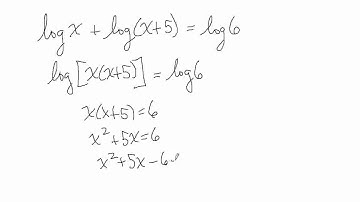 log x + log(x+5) = log 6
log[x(x+5)] = log 6
x(x+5) = 6
x² + 5x = 6
x² + 5x - 6